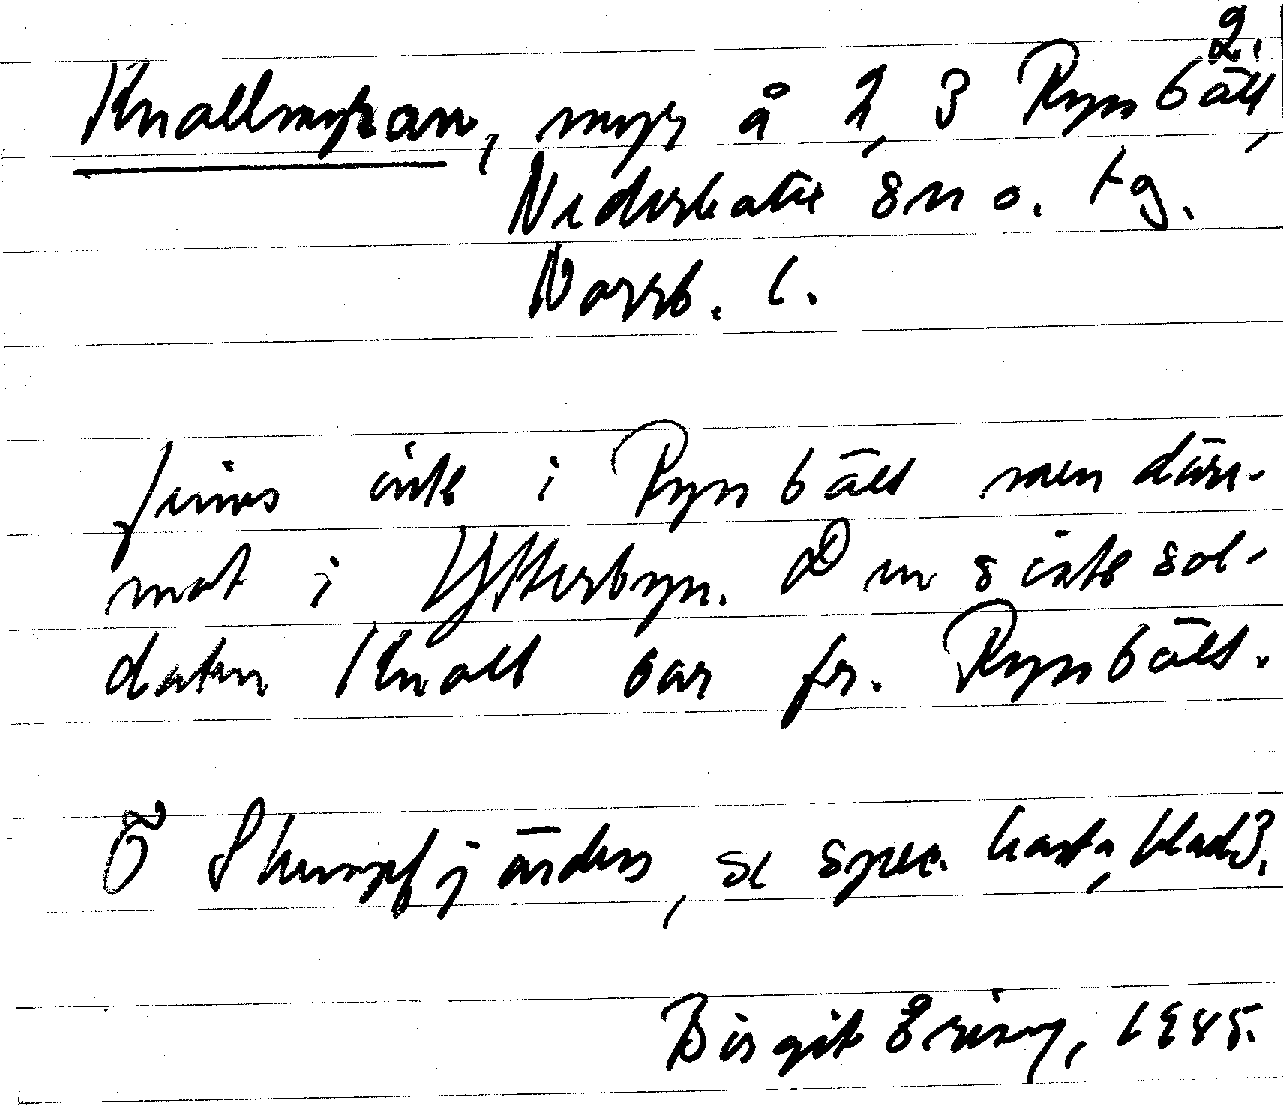 2.
Knallmyran, myr å 2, 3 Rynbäck,
Nederkalix sn o. tg.
Norrb. l.
finns inte i Rynbäck men där-
mot i Ytterbyn. Den siste sol-
daten Knall var fr. Rynbäck.
Ö Stumpfjärden, se spec. karta, blad 3.
Birgit Ering, 1985.